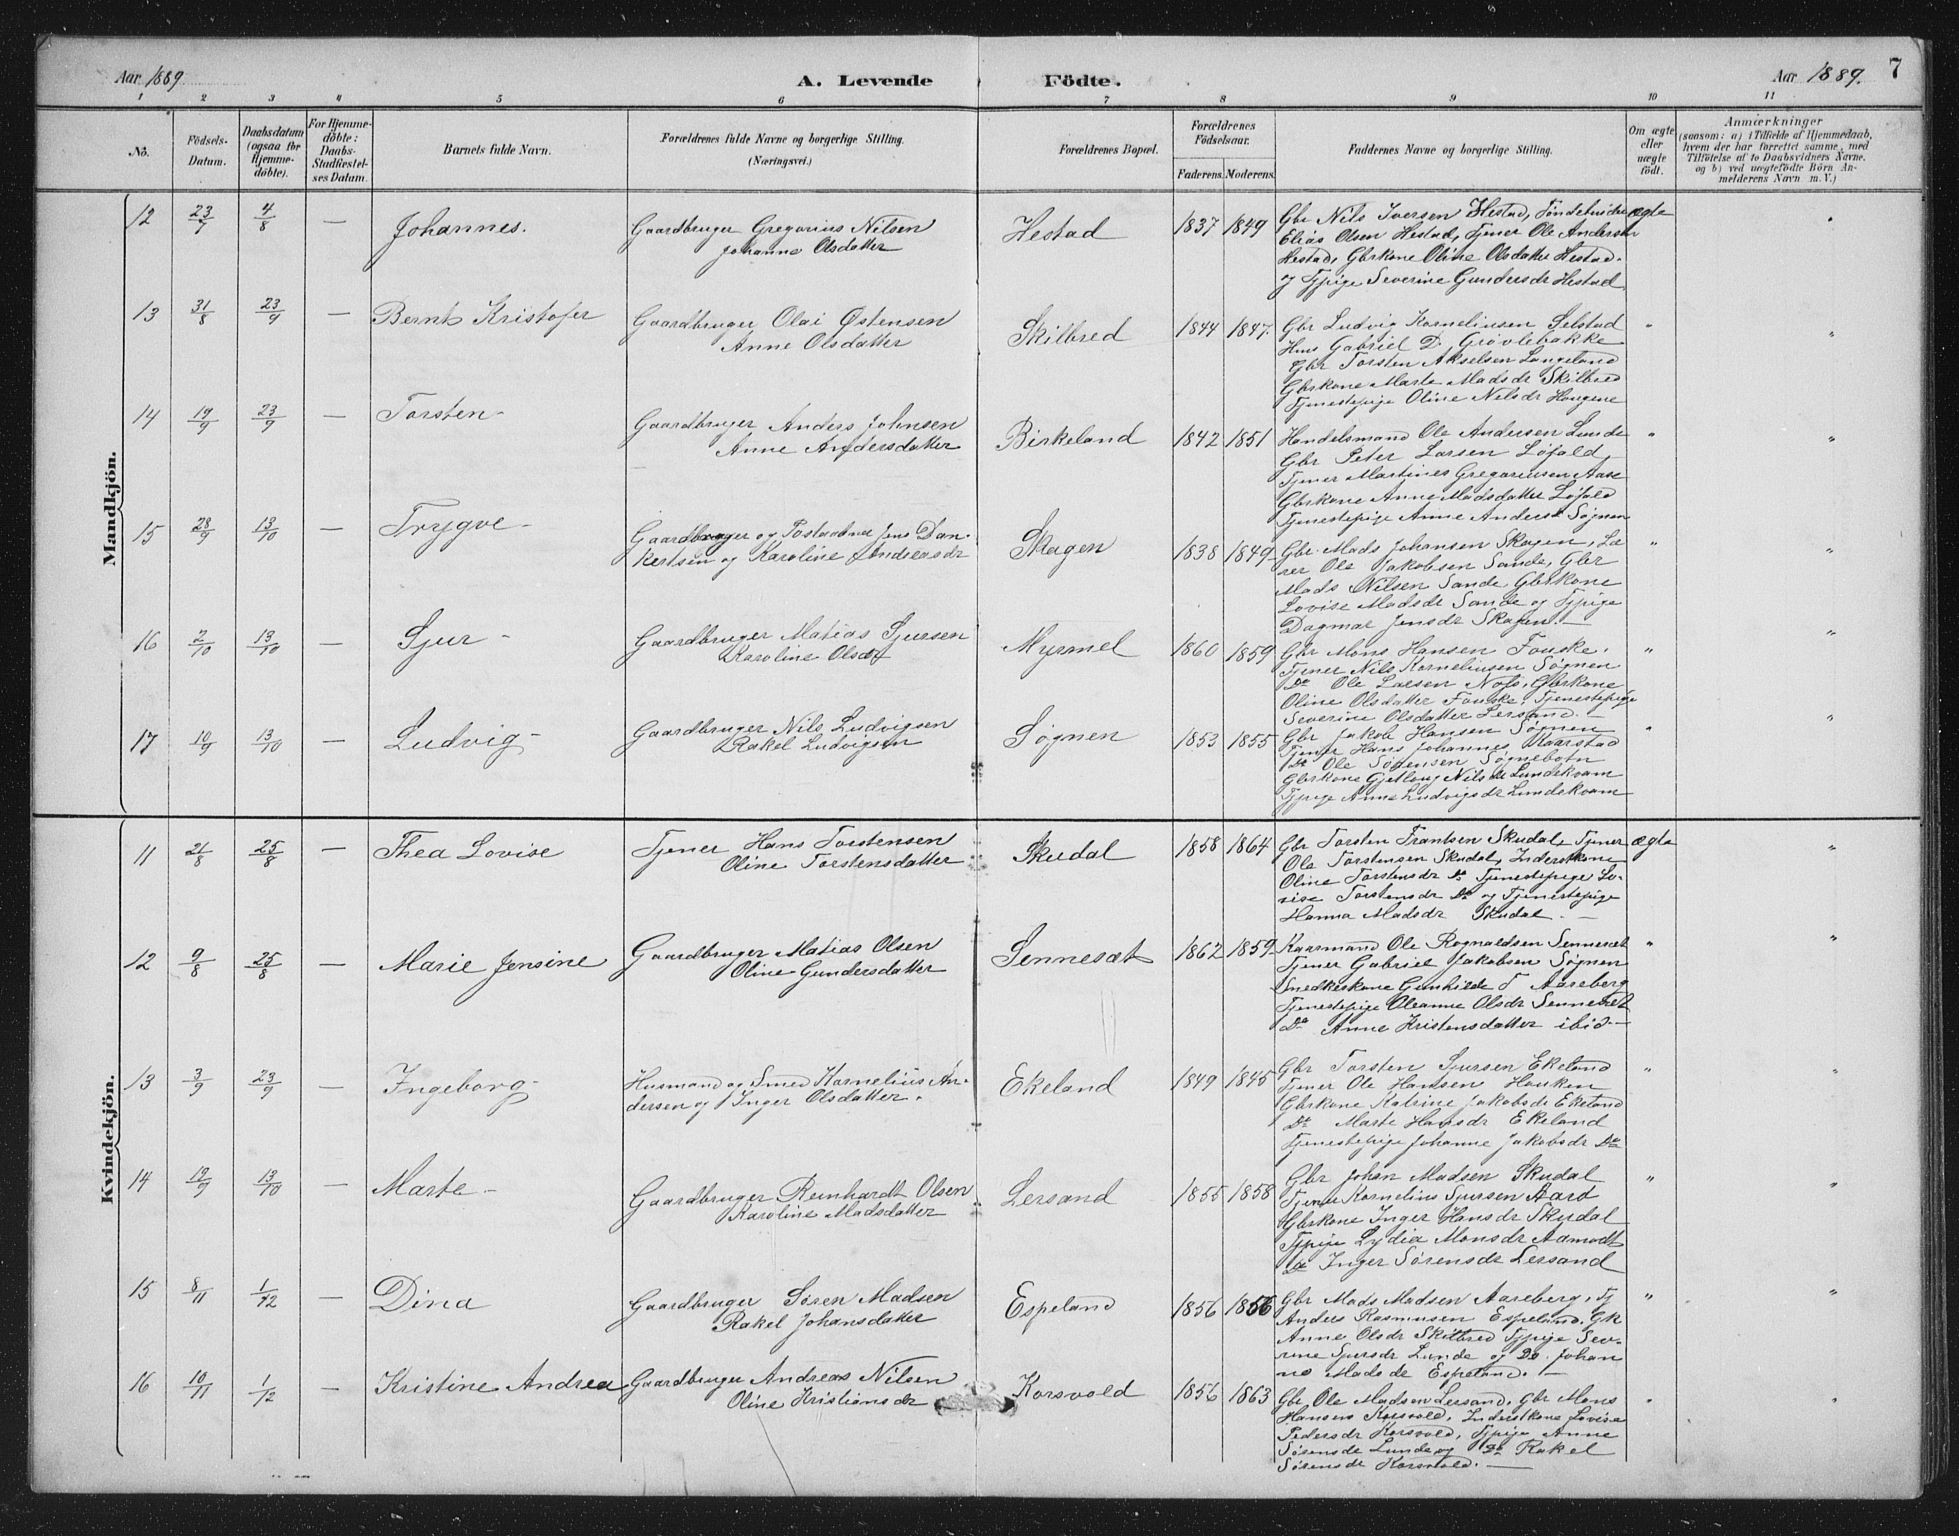 Aar 1889 A. Levende Födte. Aar 1889. 7
1 2 3 4 5 6 7 8 9 10 11
No.
Födsels-Datum.
Daabsdatum (ogsaa for Hjemme-döbte).
For Hjemme-döbte: Daabs-Stadfæstel-ses Datum.
Barnets fulde Navn.
Forældrenes fulde Navne og borgerlige Stilling. (Næringsvei.)
Forældrenes Bopæl.
Forældrenes Födselsaar.
Faderens. Moderens.
Faddernes Navne og borgerlige Stilling.
Om ægte eller uægte födt.
Anmærkninger
(saasom: a) i Tilfælde af Hjemmedaab,
hvem der har forrettet samme, med
Tilföielse af to Daabsvidners Navne.
og b) ved uægtefödte Börn An-
melderens Navn m. V.)
Mandkjön.
12 23/7 4/8 — Johannes. Gaardbruger Gregorius Nilsen
Johanne Olsdatter
Hestad 1837 1849
Gbr Nils Iversen Hestad, Tøndebinder ægte
Elias Olsen Hestad, Tjener Ole Andersen
Hestad, Gbrkone Oline Olsdatter Hestad.
og Tjpige Severine Gundersdr Hestad
13 31/8 23/9 — Bernt Kristofer Gaardbruger Olai Østensen
Anne Olsdatter
Skilbred 1844 1847.
Gbr Ludvig Korneliusen Selstad "
Hms Gabriel D. Grøvlebakke
Gbr Torsten Akselsen Langeland
Gbrkone Marte Madsdr Skilbred
Tjenestepige Oline Nilsdr Haugene
14 19/9 23/9 — Torsten- Gaardbruger Anders Johnsen
Anne Andersdatter
Birkeland 1842 1851
Handelsmand Ole Andersen Lunde "
Gbr Peter Larsen Løfald,
Tjener Martines Gregoriusen Aase
Gbrkone Anne Madsdatter Løfald
Tjenestepige Anne Andersd Søgnen
15 28/9 13/10 — Trygve- Gaardbruger og Postaabner Jens Dan-
kertsen og Karoline Andreasdr
Skagen 1838 1849-
Gbr. Mads Johansen Skagen, Læ "
rer Ole Jakobsen Sande, Gbr
Mads Nilsen Sande, Gbrkone
Lovise Madsdr Sande og Tjpige
Dagmar Jensdr Skagen. —
16 2/10 13/10 — Sjur - Gaardbruger Matias Sjursen
Karoline Olsdr
Myrmel 1860 1859
Gbr Mons Hansen Fauske. "
Tjener Nils Korneliusen Søgnen
Do Ole Larsen , Gbrkone
Oline Olsdatter Fauske, Tjenestepige
Severine Olsdatter Lersand. —
17 10/9 13/10 — Ludvig- Gaardbruger Nils Ludvigsen
Rakel Ludvigsen
Søgnen 1853 1855
Gbr Jakob Hansen Søgnen "
Tjener Hans Johannes Kaarstad
Do Ole Sørensen Søgnebotn
Gbrkone Gjetlaug Nilsdr Lundekvam
Tjpige Anne Ludvigsdr Lundekvam
Kvindekjön.
11 21/8 25/8 — Thea Lovise Tjener Hans Torstensen
Oline Torstensdatter
Skudal 1858 1864
Gbr Torsten Frantsen Skudal, Tjener ægte
Ole Torstensen Skudal, Inderstkone
Oline Torstensdr Do Tjenestepige Lo-
vise Torstensdr Do og Tjenestepige
Hanna Madsdr Skudal. —
12 9/8 25/8 — Marie Jensine Gaardbruger Matias Olsen
Oline Gundersdatter
Sennesæt 1862 1859-
Kaarmand Ole Rognaldsen Sennesæt "
Tjener Gabriel Jakobsen Søgnen
Snedkerkone Gunhilde T Aareberg
Tjenestepige Oleanne Olsdr Sennesæt
Do Anne Kristensdatter ibid.—
13 3/9 23/9 — Ingeborg- Husmand og Smed Kornelius An-
dersen og Inger Olsdatter.
Ekeland 1849 1845
Gbr Torsten Sjursen Ekeland "
Tjener Ole Hansen Hauken
Gbrkone Katrine Jakobsdr Ekeland
Do Marte Hansdr Ekeland
Tjenestepige Johanne Jakobsdr Do
14 19/9 13/10 — Marte- Gaardbruger Reinhardt Olsen
Karoline Madsdatter
Lersand 1855 1858
Gbr Johan Madsen Skudal "
Tjener Kornelius Sjursen Aard
Gbrkone Inger Hansdr Skudal
Tjpige Lydia Monsdr Aamodt
Do Inger Sørensdr Lersand
15 8/11 1/12 — Dina Gaardbruger Søren Madsen
Rakel Johansdatter
Espeland 1856 1856
Gbr Mads Madsen Aareberg, Tj "
Anders Rasmusen Espeland, Gk
Anne Olsdr Skilbred Tjpige Seve-
rine Sjursdr Lunde og Do. Johan
ne Madsdr Espeland. —
16 10/11 1/12 — Kristine Andrea Gaardbruger Andreas Nilsen
Oline Kristiansdr
Korsvold 1856 1863
Gbr Ole Madsen Lersand, Gbr Mons "
Hansen Korsvold, Inderstkone Lovise
Pedersdr Korsvold, Tjpige Anne
Sørensdr Lunde og Do Rakel
Sørensdr Korsvold. —